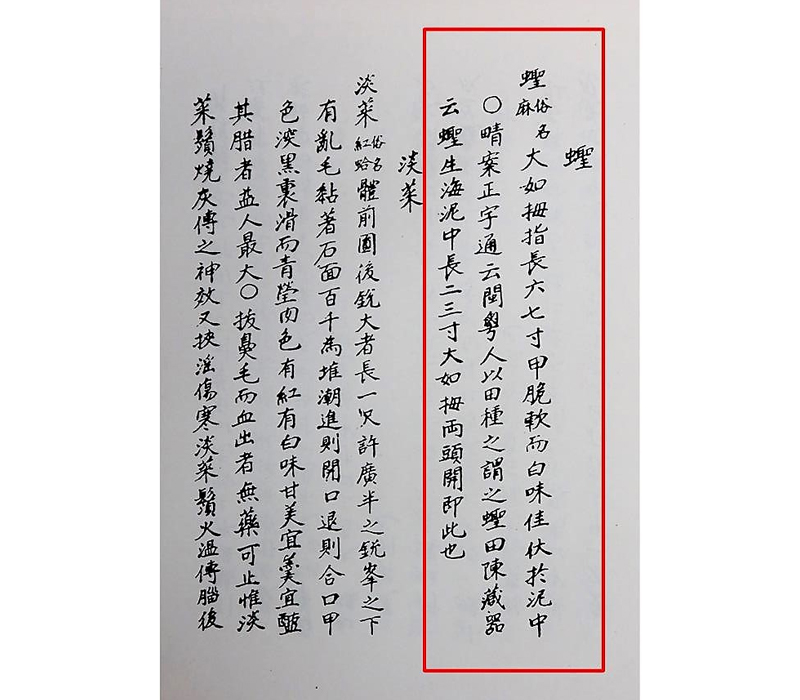 蟶
蟶俗名麻大如拇指長六七寸甲脆軟而白味佳伏於泥中
○晴案正字通云閩粵人以田種之謂之蟶田陳藏器
云蟶生海泥中長二三寸大如拇両頭開即此也
淡菜
淡菜俗名紅蛤體前圓後銳大者長一尺許廣半之銳峯之下
有亂毛黏著石面百千為堆潮進則開口退則合口甲
色淡黑裏滑而青瑩肉色有紅有白味甘美宜羹宜醢
其腊者益人最大○拔鼻毛而血出者無藥可止惟淡
菜鬚燒灰傅之神效又挾淫傷寒淡菜鬚火溫傅腦後